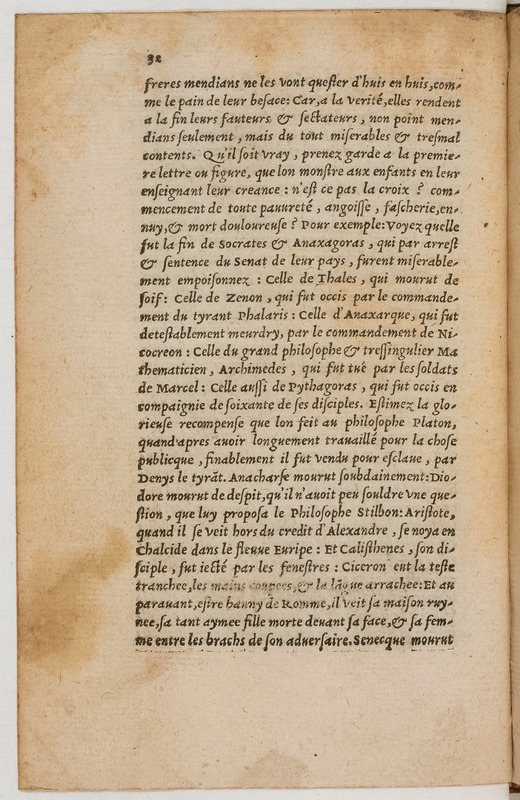 32
freres mendians ne les vont quester d'huis en huis, com-
me le pain de leur besace: Car, a la verité, elles rendent
a la fin leurs fauteurs & sectateurs, non point men-
dians seulement, mais du tout miserables & tresmal
contents. Qu'il soit vray, prenez garde a la premie-
re lettre ou figure, que lon monstre aux enfants en leur
enseignant leur creance: n'est ce pas la croix? com-
mencement de toute pauureté, angoisse, fascherie, en-
nuy, & mort douloureuse? Pour exemple: Voyez quelle
fut la fin de Socrates & Anaxagoras, qui par arrest
& sentence du Senat de leur pays, furent miserable-
ment empoisonnez: Celle de Thales, qui mourut de
soif: Celle de Zenon, qui fut occis par le commande-
ment du tyrant Phalaris: Celle d'Anaxarque, qui fut
detestablement meurdry, par le commandement de Ni-
cocreon: Celle du grand philosophe & tressingulier Ma
thematicien, Archimedes, qui fut tué par les soldats
de Marcel: Celle aussi de Pythagoras, qui fut occis en
compaignie de soixante de ses disciples. Estimez la glo-
rieuse recompense que lon feit au philosophe Platon,
quand apres auoir longuement trauaillé pour la chose
publicque, finablement il fut vendu pour esclaue, par
Denys le tyrāt. Anacharse mourut soubdainement: Dio-
dore mourut de despit, qu'il n'auoit peu souldre vne que-
stion, que luy proposa le Philosophe Stilbon: Aristote,
quand il se veit hors du credit d'Alexandre, se noya en
Chalcide dans le fleuue Euripe: Et Calisthenes, son di-
sciple, fut iecté par les fenestres: Ciceron eut la teste
tranchee, les mains coupees, & la lāgue arrachee: Et au
parauant, estre banny de Romme, il veit sa maison ruy-
nee, sa tant aymee fille morte deuant sa face, & sa fem-
me entre les brachs de son aduersaire. Senecque mourut